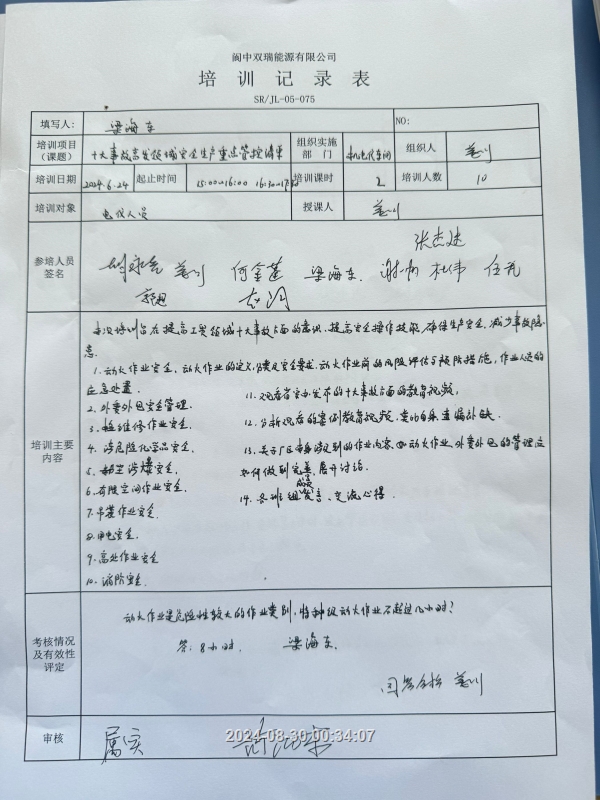 阆中双瑞能源有限公司
培训记录表
SR/JL-05-075
填写人: 梁海东 NO:
培训项目（课题） 十大事故高发领域安全生产重点管控清单 组织实施部门 机电仪车间 组织人 姜川
培训日期 2024.6.24 起止时间 15:00~16:00 16:30~17:30 培训课时 2 培训人数 10
培训对象 电仪人员 授课人 姜川
参培人员签名
张杰达
姜川 何金莲 梁海东 杜伟
培训主要内容
本次培训旨在提高工贸领域十大事故方面的意识,提高安全操作技能,确保生产安全,减少事故隐
患.
1.动火作业安全,动火作业的定义,分类及安全要求,动火作业前的风险评估与预防措施,作业人员的
应急处置.
2.外委外包安全管理.
3.检维修作业安全.
4.涉危险化学品安全.
5.粉尘涉爆安全.
6.有限空间作业安全.
7.吊装作业安全.
8.用电安全.
9.高处作业安全
10.消防安全.
11.观看省安办发布的十大事故方面的教育视频,
12.分析观后的案例教育视频,类比自身查漏补缺.
13.关于厂区市级级别的作业内容,如动火作业,外委外包的管理应
如何做到完善,展开讨论.
14.各班组成员发言、交流心得.
考核情况及有效性评定
动火作业是危险性较大的作业类别,特种级动火作业不超过几小时?
答:8小时. 梁海东.
回答合格 姜川
审核 属实
2024-08-30 00:34:07